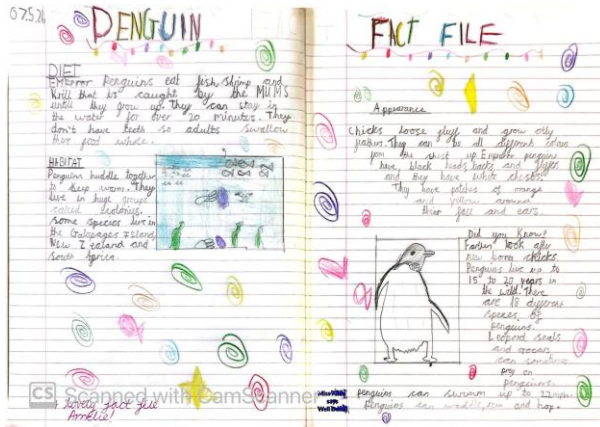 07.5.26
PENGUIN
DIET
Emperor Penguins eat fish, shrimp and
Krill that is caught by the MUMS
untill they grow up. They can stay in
the water for over 20 minutes. They
don't have teeth so adults swallow
their food whole.
HABITAT
Penguins huddle together
to keep warm. They
live in huge groups
called colonies.
Some species live in
the Galapagos Island,
New Zealand and
South Africa.
CS Scanned with CamScanner
A lovely fact file
Amelie!
FACT FILE
Appearance
Chicks loose fluff and grow oily
feathers. They can be all different colours
from the chest up. Emperor penguins
have black heads, backs and
and they have white chests.
They have patches of orange
and yellow around
their face and ears.
Did you know?
Farthers look after
new born chicks.
Penguins live up to
15 to 20 years in
the wild. There
are 18 different
species of
penguins.
Leopard seals
and orcas
can sometimes
prey on
penguins.
Miss
says
Well Done!
Penguins can swimm up to 22mph.
Penguins can waddle, run and hop.